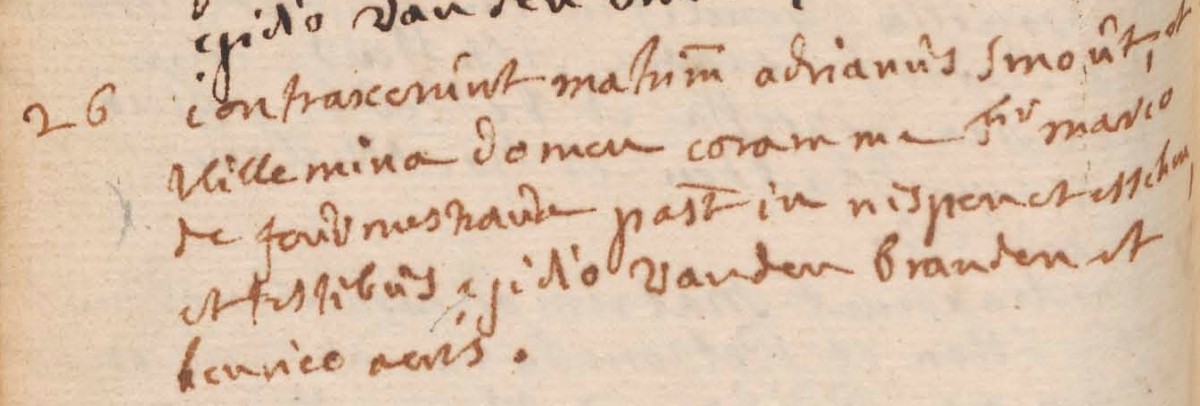 egidio vanden
26 contraxerunt matrim̄ adrianus Smout, et
Willemina domen coram me f̄r̄ marco
de past̄ in nispen et esschen
et testibus egidio vanden branden et
henrico aerts.